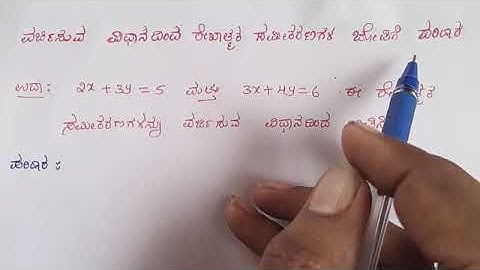 ವರ್ಜಿಸುವ ವಿಧಾನದಿಂದ ರೇಖಾತ್ಮಕ ಸಮೀಕರಣಗಳ ಜೋಡಿಗೆ ಪರಿಹಾರ
ಉದಾ: 2x + 3y = 5 ಮತ್ತು 3x + 4y = 6 ಈ
ಸಮೀಕರಣಗಳನ್ನು ವರ್ಜಿಸುವ ವಿಧಾನದಿಂದ
ಪರಿಹಾರ :